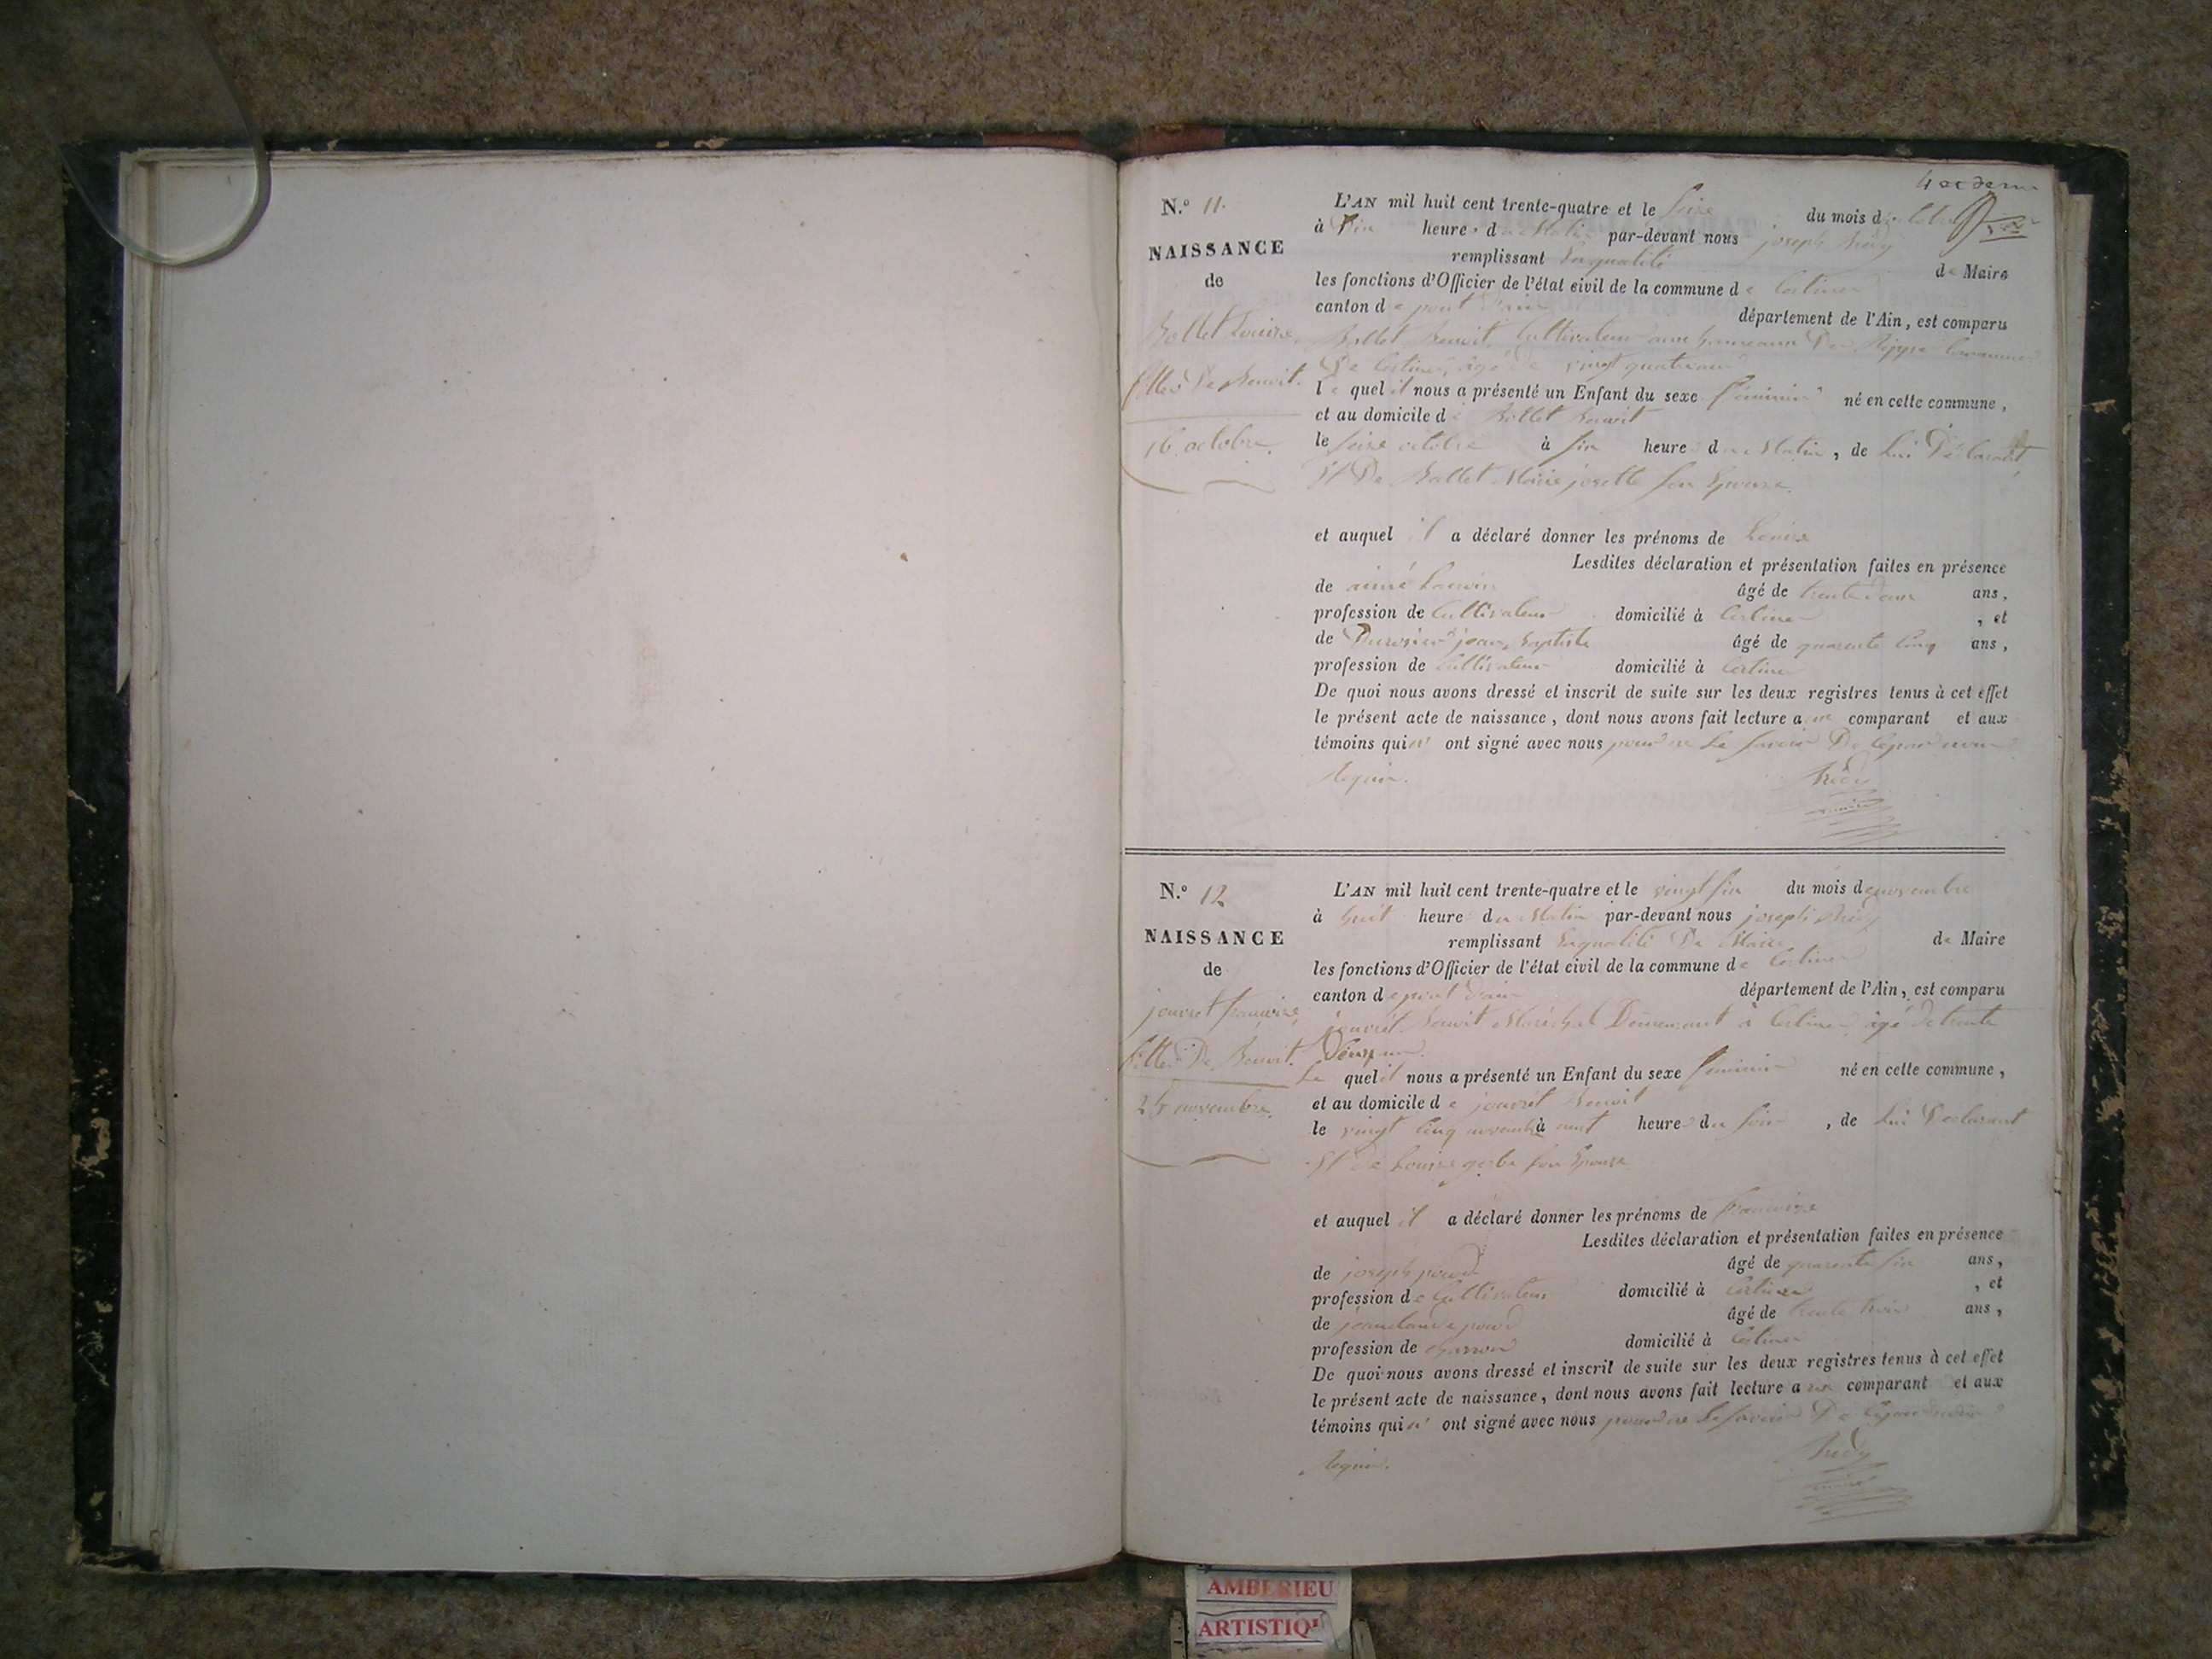 4 et dern
N.° 11.
NAISSANCE
de
Bollet Louise
fille De Benoit.
16 octobre.
L'AN mil huit cent trente-quatre et le seize du mois d
à Dix heure du Matin par-devant nous joseph
remplissant En qualité de Maire
les fonctions d'Officier de l'état civil de la commune de Certines
canton de pont d'ain département de l'Ain, est comparu
Bollet Benoit, Cultivateur aux hameaux De Commune
De Certines, âgé de vingt quatre ans
le quel il nous a présenté un Enfant du sexe féminin né en cette commune,
et au domicile de Bollet Benoit
le seize octobre à six heure du Matin, de Lui Déclarant
Et De Bollet Marie josette son Epouse.
et auquel il a déclaré donner les prénoms de Louise
Lesdites déclaration et présentation faites en présence
de aimé âgé de ans,
profession de Cultivateur domicilié à Certines, et
de jean Baptiste âgé de quarente Cinq ans,
profession de Cultivateur domicilié à Certines
De quoi nous avons dressé et inscrit de suite sur les deux registres tenus à cet effet
le présent acte de naissance, dont nous avons fait lecture au comparant et aux
témoins qui n' ont signé avec nous pour ne Le savoir De
Requis.
N.° 12
NAISSANCE
de
jouvret françoise
fille De Benoit.
25 novembre.
L'AN mil huit cent trente-quatre et le vingt six du mois de novembre
à huit heure du Matin par-devant nous joseph
remplissant En qualité De Maire de Maire
les fonctions d'Officier de l'état civil de la commune de Certines
canton de pont d'ain département de l'Ain, est comparu
jouvret Benoit Maréchal Demeurant à Certines âgé de trente
Deux ans.
Le quel il nous a présenté un Enfant du sexe féminin né en cette commune,
et au domicile de jouvret Benoit
le vingt cinq novembre à heure du soir, de Lui Déclarant
Et De Louise son Epouse
et auquel il a déclaré donner les prénoms de françoise
Lesdites déclaration et présentation faites en présence
de joseph âgé de quarente six ans,
profession de Cultivateur domicilié à Certines, et
de jean claude âgé de trente trois ans,
profession de charron domicilié à Certines
De quoi nous avons dressé et inscrit de suite sur les deux registres tenus à cet effet
le présent acte de naissance, dont nous avons fait lecture au comparant et aux
témoins qui n' ont signé avec nous pour ne Le savoir De
Requis.
AMBERIEU
ARTISTIQU